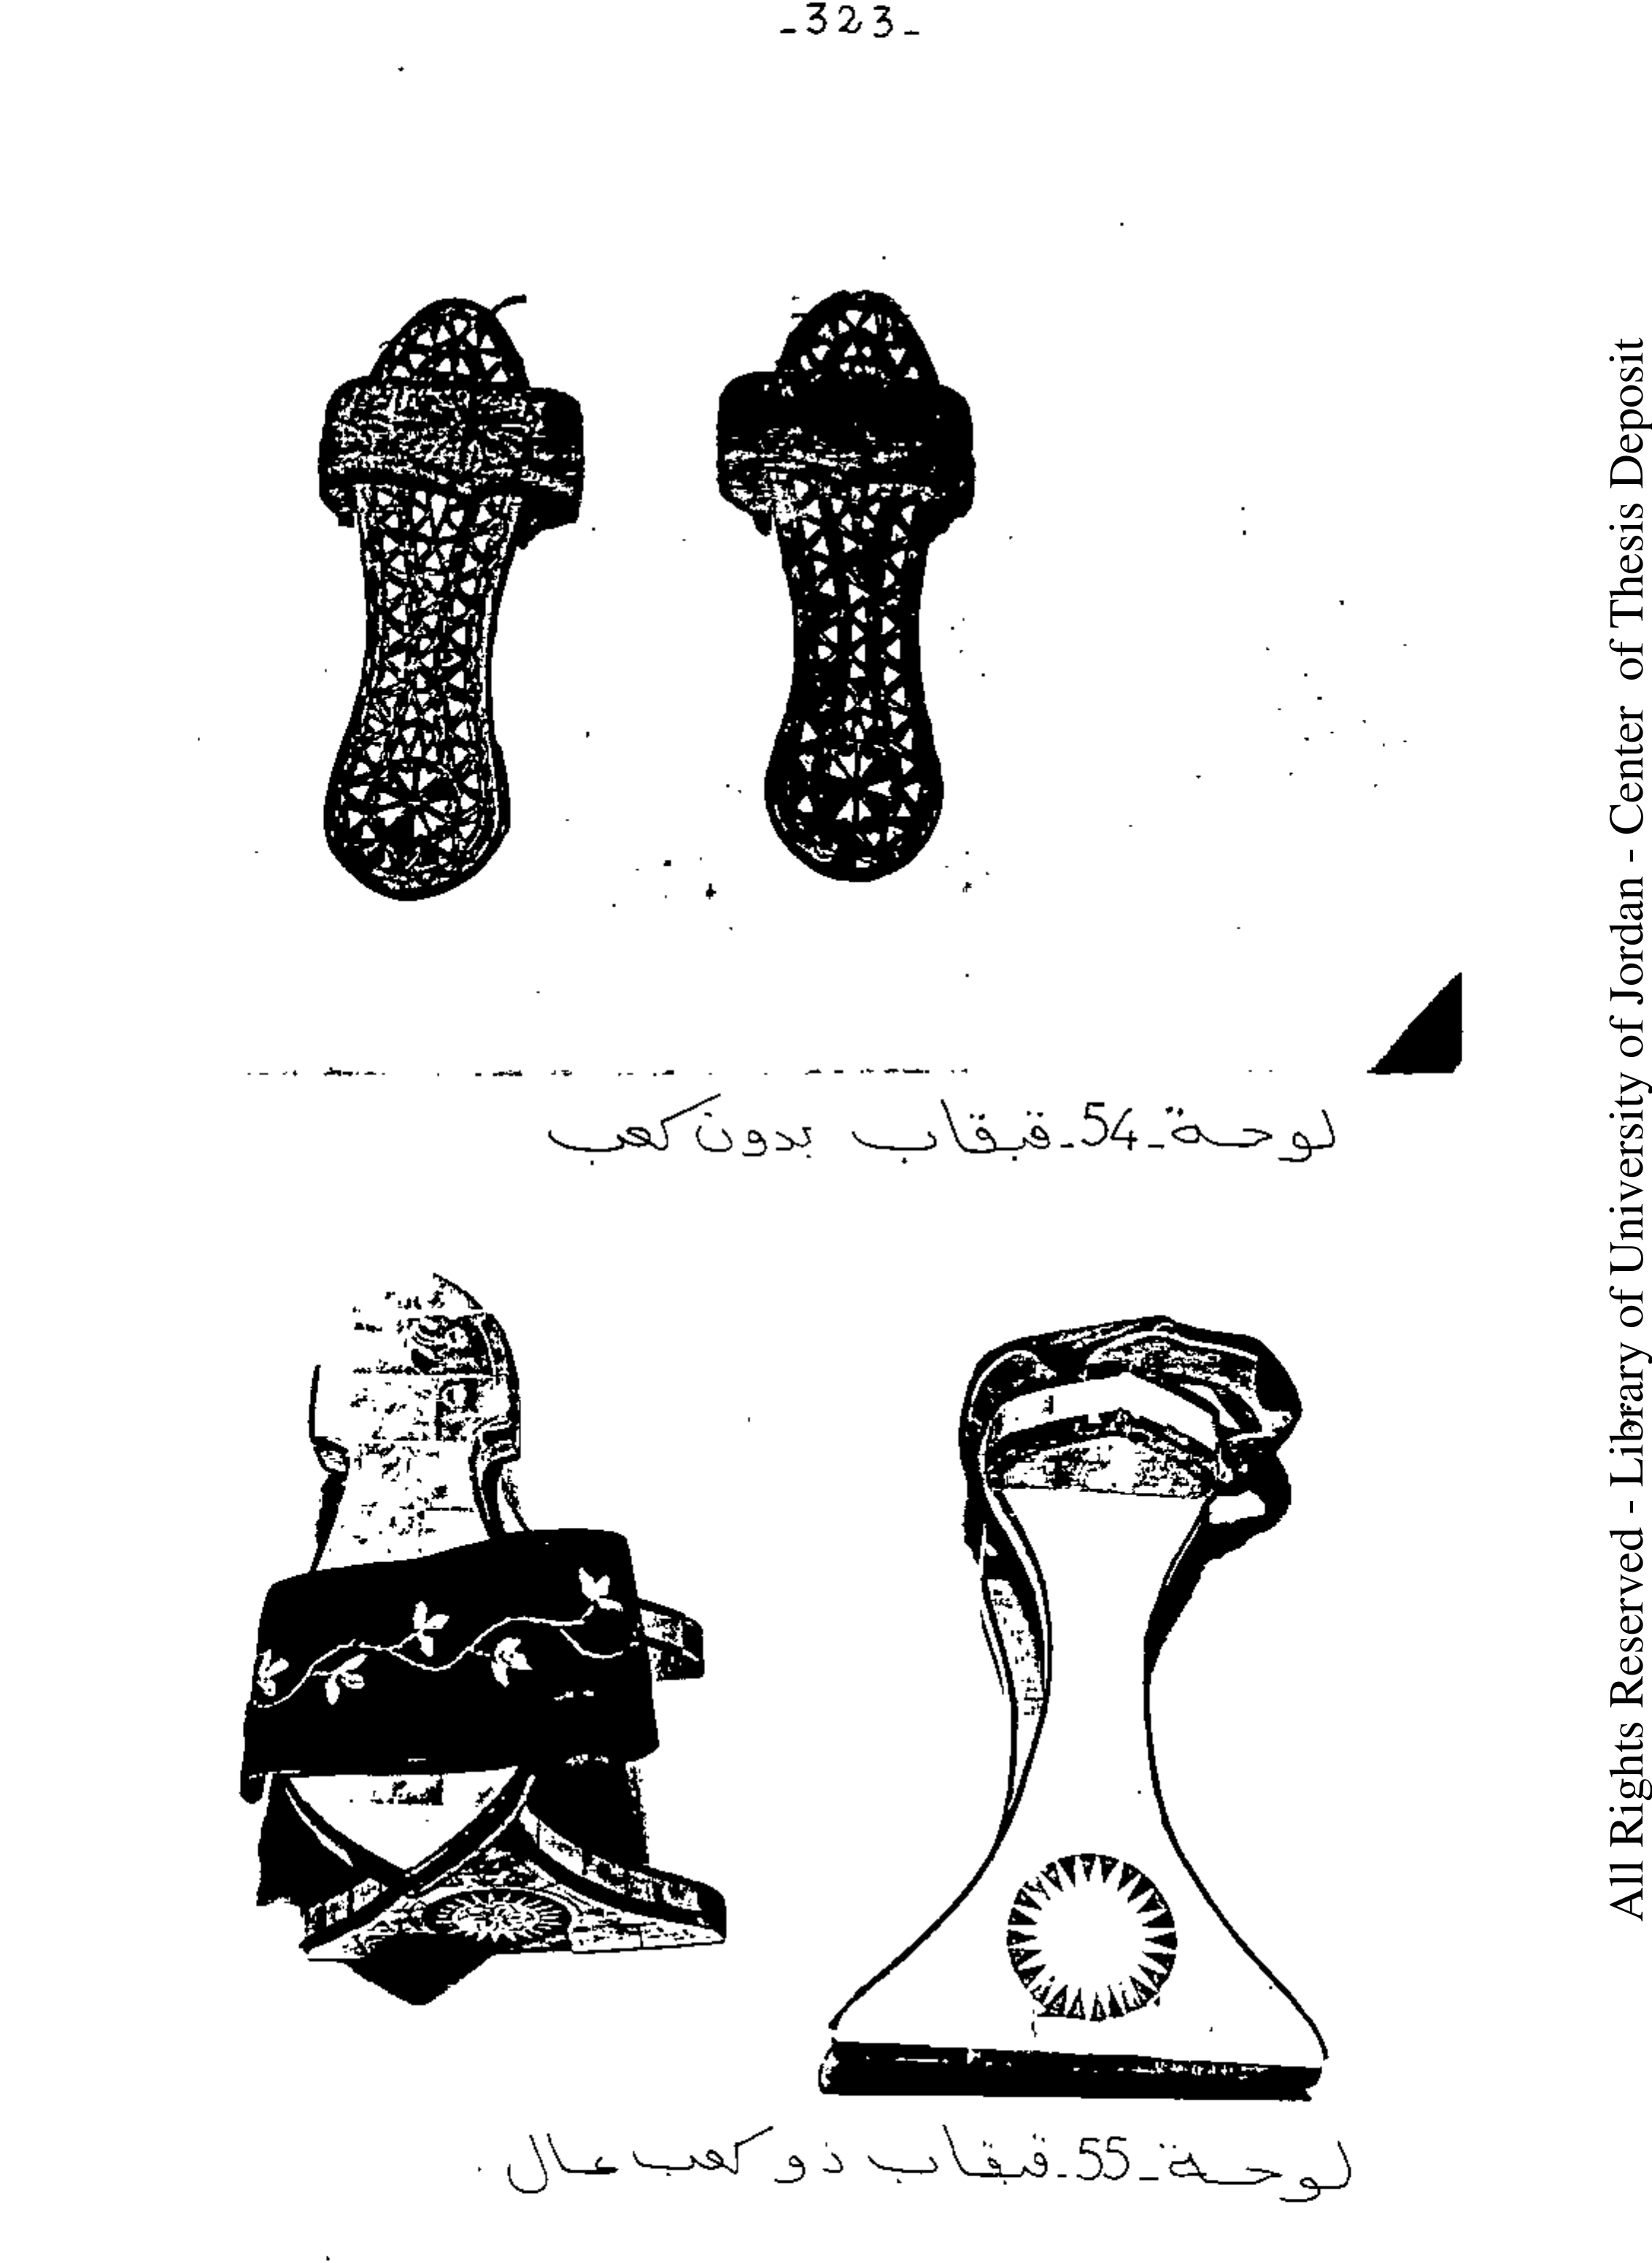 -323-
لوحة-54-قبقاب بدون كعب
لوحة-55-قبقاب ذو كعب عال.
All Rights Reserved - Library of University of Jordan - Center of Thesis Deposit